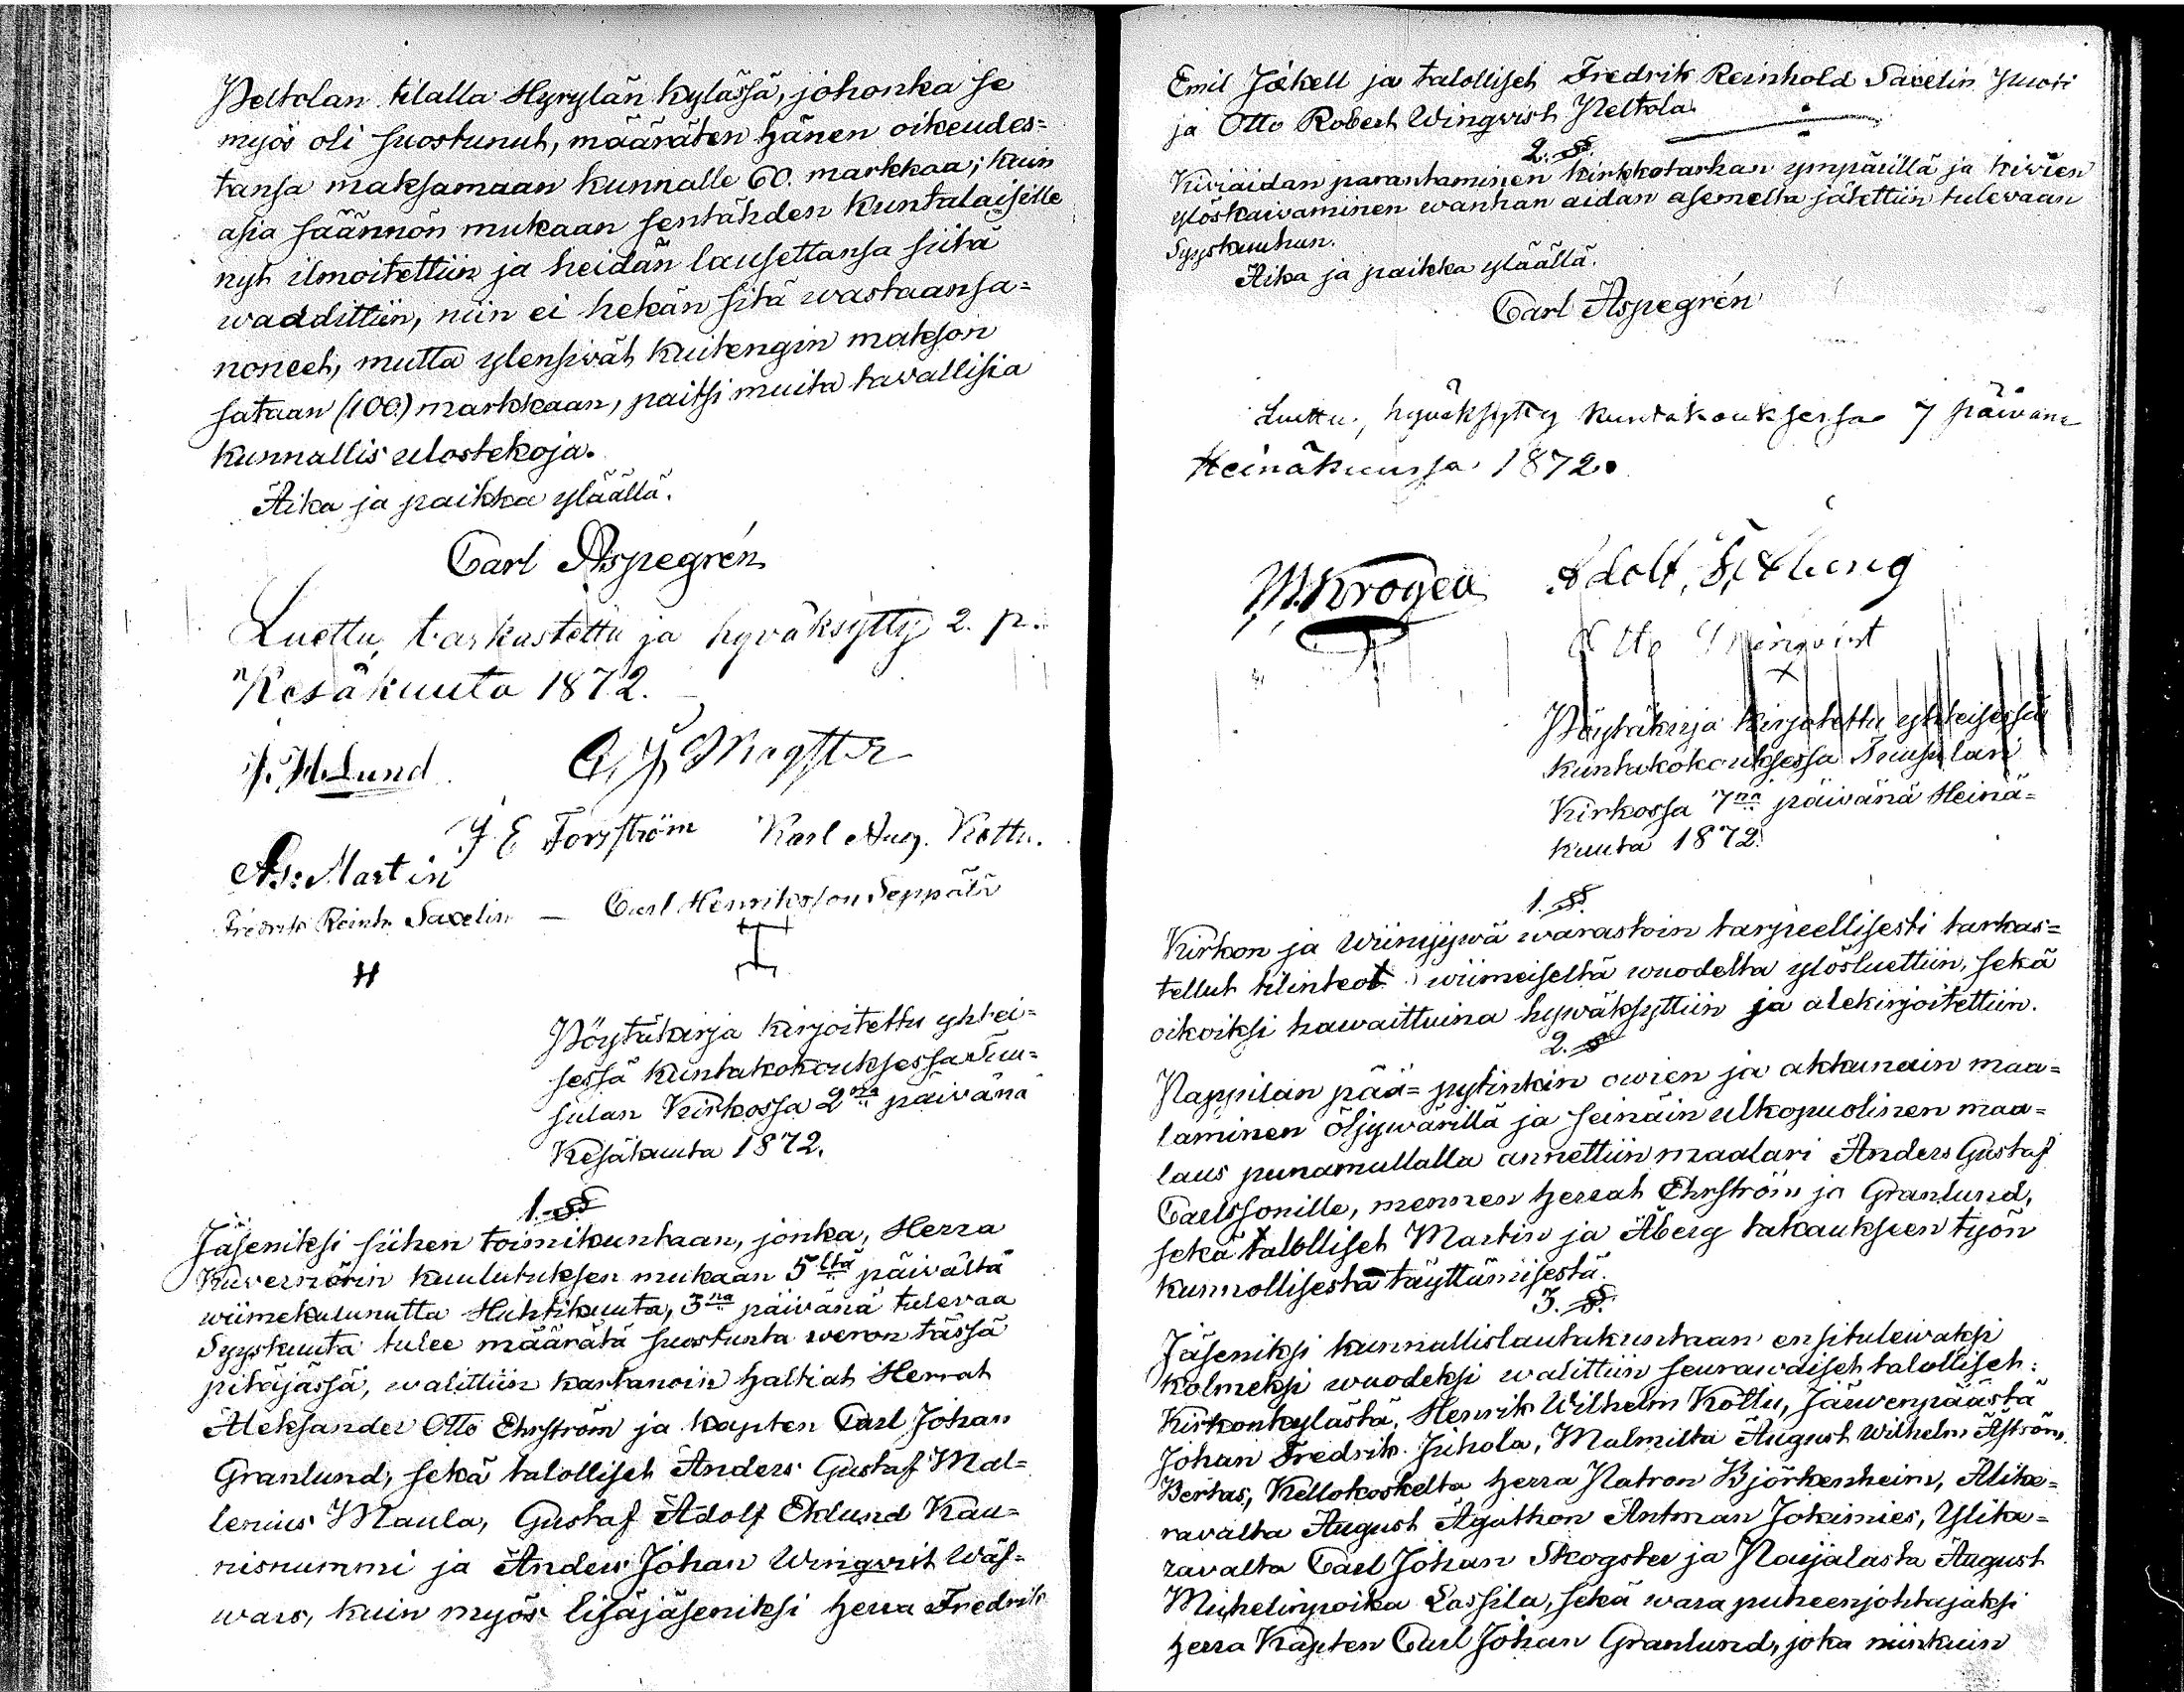 Peltolan tilalla Hyrylän kylässä, johonka se
myös oli suostunut, määräten hänen oikeudes=
tansa maksamaan kunnalle 60. markkaa; kuin
asia säännön mukaan sentähden kuntalaisille
nyt ilmoitettiin ja heidän lausettansa siitä
waaddittiin, niin ei hekän sitä wastaansa=
noneet, mutta ylensivät kuitengin makson
sataan (100.) markkaan, paitsi muita tavallisia
kunnallis ulostekoja.
Aika ja paikka yläällä.
Carl Aspegrén
Luettu, tarkastettu ja hyväksytty 2. p.
Kesäkuuta 1872.
J. H. Lund
J E Forsström Karl Aug. Kottu.
As: Martin
Fredrik Reinh. Saxelin — Carl Henriksson Seppälä
H
Pöytäkirja kirjoitettu yhtei=
sessä kuntakokouksessa Tuu=
sulan Kirkossa 2na päivänä
Kesäkuuta 1872.
1. §.
Jäseniksi siihen toimikuntaan, jonka, Herra
Kuvernörin kuulutuksen mukaan 5ltä päivältä
wiimekulunutta Huhtikuuta, 3na päivänä tulevaa
Syyskuuta tulee määrätä suostunta weron tässä
pitäjässä, walittiin kartanoin haltiat Herrat
Aleksander Otto Ehrström ja kapten Carl Johan
Granlund, sekä talolliset Anders Gustaf Mal=
lenius Maula, Gustaf Adolf Eklund Kau=
nisnummi ja Anders Johan Wingvist Wäs=
wars, kuin myös lisäjäseniksi herra Fredrik
Emil Jäkell ja talolliset Fredrik Reinhold Saxelin
ja Otto Robert Wingvist Peltola.
2. §.
Kiviaidan parantaminen kirkkotarhan ympärillä ja kivien
ylöskaivaminen wanhan aidan asemelta jätettiin tulevaan
Syyskuuhun.
Aika ja paikka yläällä.
Carl Aspegrén
Luettu, hyväksytty kuntakouksessa 7 päivänä
Heinäkuussa 1872.
M. Krogell Adolf
Otto Wingvist
X
Pöytäkirja kirjotettu yhteisessä
kuntakokouksessa Tuusulan
Kirkossa 7nä päivänä Heinä=
kuuta 1872.
1. §.
Kirkon ja Wiinijywä warastoin tarpeellisesti tarkas=
tellut tilinteot wiimeiseltä wuodelta ylösluettiin, sekä
oikoiksi hawaittuina hywäksyttiin ja alekirjoitettiin.
2. §
Pappilan pää=pytinkin owien ja akkunain maa=
laminen öljywärillä ja seinäin ulkopuolinen maa=
laus punamullalla annettiin maalari Anders Gustaf
Carlssonille, mennen herrat Ehrström ja Granlund,
sekä talolliset Martin ja Åberg takaukseen työn
kunnollisesta täyttämisestä.
3. §.
Jäseniksi kunnallislautakuntaan ensitulewaksi
kolmeksi wuodeksi walittiin seurawaiset talolliset:
Kirkonkylästä, Henrik Wilhelm Kottu, Järwenpäästä
Johan Fredrik Juhola, Malmilta August Wilhelm Åström
Bertas, Kellokoskelta herra Patron Björkenheim, Alike=
ravalta August Agathon Antman Jokimies, Ylike=
ravalta Carl Johan Skogster ja Paijalasta August
Mickelinpoika Lassila, sekä wara puheenjohtajaksi
herra Kapten Carl Johan Granlund, joka niinkuin